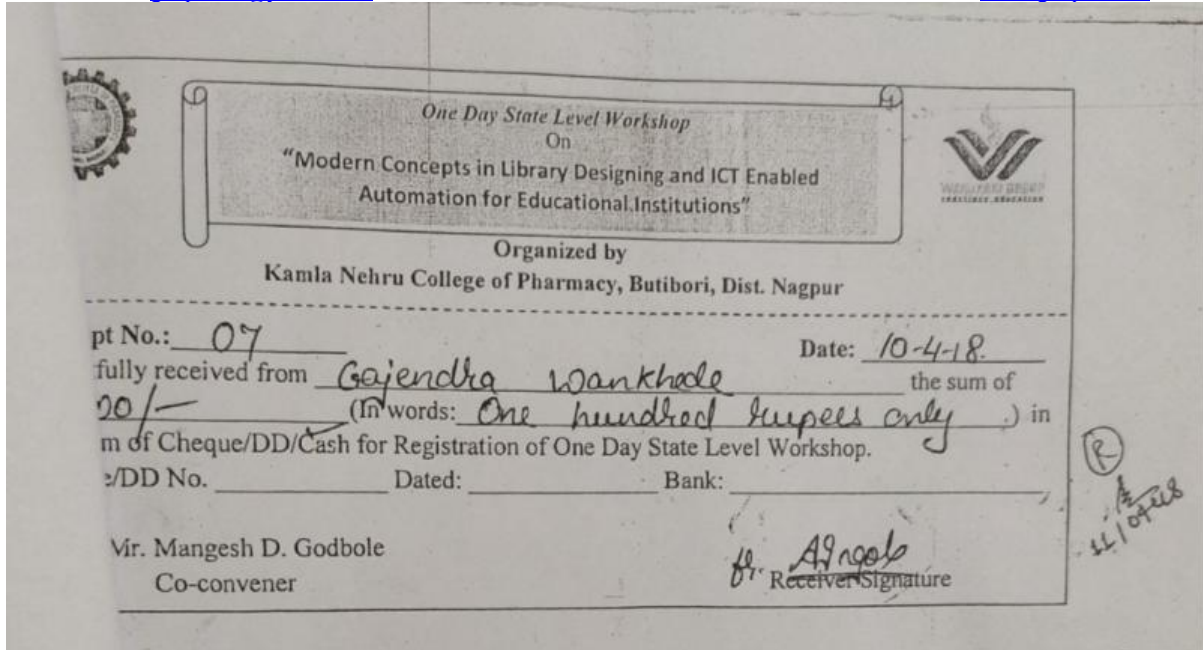 One Day State Level Workshop
On
"Modern Concepts in Library Designing and ICT Enabled
Automation for Educational Institutions"
Organized by
Kamla Nehru College of Pharmacy, Butibori, Dist. Nagpur
pt No.: 07 Date: 10-4-18.
fully received from Gajendra Wankhede the sum of
00/- (In words: One hundred rupees only.) in
m of Cheque/DD/Cash for Registration of One Day State Level Workshop.
e/DD No. Dated: Bank:
R
Mr. Mangesh D. Godbole
Co-convener Receiver Signature